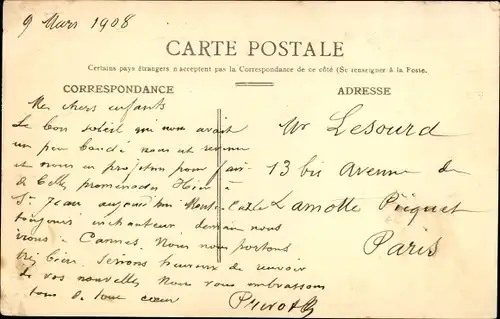 9 Mars 1908
CARTE POSTALE
Certains pays étrangers n'acceptent pas la Correspondance de ce côté (Se renseigner à la Poste.
CORRESPONDANCE
ADRESSE
Mes chers enfants
Le bon soleil qui nous avait
un peu boudé nous est revenu
et nous en profitons pour faire
de belles promenades Hier à
St Jean aujourd'hui Monte-Carlo
toujours enchanteur, demain nous
irons à Cannes. Nous nous portons
très bien. Serions heureux de recevoir
de vos nouvelles Nous vous embrassons
tous de tout cœur
Mr Lesourd
13 bis Avenue de
Lamotte Picquet
Paris